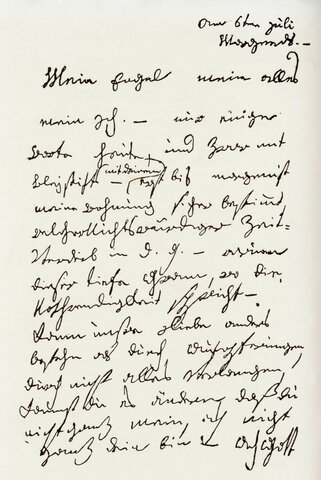 am 6ten juli
Morgends. —
Mein Engel, mein alles
mein Ich. — nur einige
Worte heute, und zwar mit
Bleistift — (mit deinem) erst bis morgen ist
meine Wohnung sicher bestimmt,
welcher Nichtswürdiger Zeit-
Verderb in d. g. — warum
dieser tiefe Gram, wo die
Nothwendigkeit spricht —
Kann unsre Liebe anders
bestehn als durch Aufopferungen,
durch nicht alles verlangen,
kannst du es ändern, daß du
nicht ganz mein, ich nicht
ganz dein bin — Ach Gott